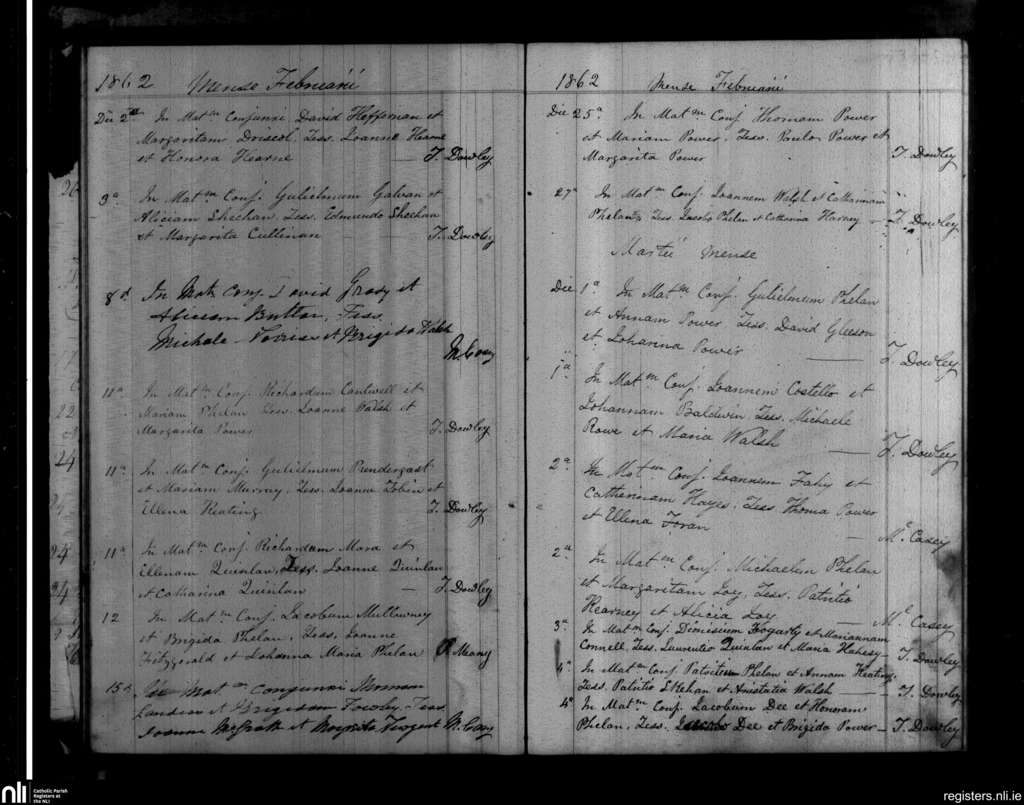 1862 Mense Februarii
Die 2da In Matm Conjunxi David Heffernan et
Margaritam Driscol, Tess. Joanne Hearne
et Honora Hearne — T. Dowley
9a In Matm Conj. Gulielmum Galvan et
Aliciam Sheehan, Tess. Edmundo Sheehan
et Margarita Cullinan T. Dowley
8d In Mat. Conj. David Grady et
Aliciam Butler, Tess.
Michale et Brigida Walsh
M. Casey
11a In Matm Conj. Richardum Cantwell et
Mariam Phelan Tess. Joanne Walsh et
Margarita Power T. Dowley
11a In Matm Conj. Gulielmum Prendergast
et Mariam Murray, Tess. Joanne Tobin et
Ellena Keating T. Dowley
11a In Matm Conj. Richardum Mara et
Ellenam Quinlan, Tess. Joanne Quinlan
et Catharina Quinlan — T. Dowley
12 In Matm Conj. Jacobum Mullowney
et Brigida Phelan, Tess. Joanne
Fitzgerald et Johanna Maria Phelan P Meany
15a Matm Conjunxi
et Brigidam Tess
Joanne McGrath et M. Casey
1862 Mense Februarii
Die 25a In Matm Conj Thomam Power
et Mariam Power, Tess. Paulo Power et
Margarita Power T. Dowley
27a In Matm Conj. Joannem Walsh et Cathariam
Phelan, Tess. Jacobo Phelan et Catherina Harney — T. Dowley
Martii Mense
Die 1a In Matm Conj. Gulielmum Phelan
et Annam Power Tess. David Gleeson
et Johanna Power — T. Dowley
1a In Matm Conj. Joannem Costello et
Johannam Baldwin, Tess. Michaele
Rowe et Maria Walsh — T. Dowley
2a In Matm Conj. Joannem Fahy et
Catherinam Hayes, Tess. Thoma Power
et Ellena Foran — Mc Casey
2a In Matm Conj. Michaelem Phelan
et Margaritam Loy, Tess. Patritio
Kearney et Alicia Loy — Mc Casey
3a In Matm Conj. Dionisium Fogarty et Mariannam
Connell, Tess. Laurentio Quinlan et Maria Hahesy — T. Dowley
4a In Matm Conj Patritium Phelan et Annam Keating,
Tess. Patritio Phelan et Anistatia Walsh — T. Dowley
4a In Matm Conj. Jacobum Dee et Honoram
Phelan, Tess. Jacobo Dee et Brigida Power — T. Dowley
nli
Catholic Parish
Registers at
the NLI
registers.nli.ie